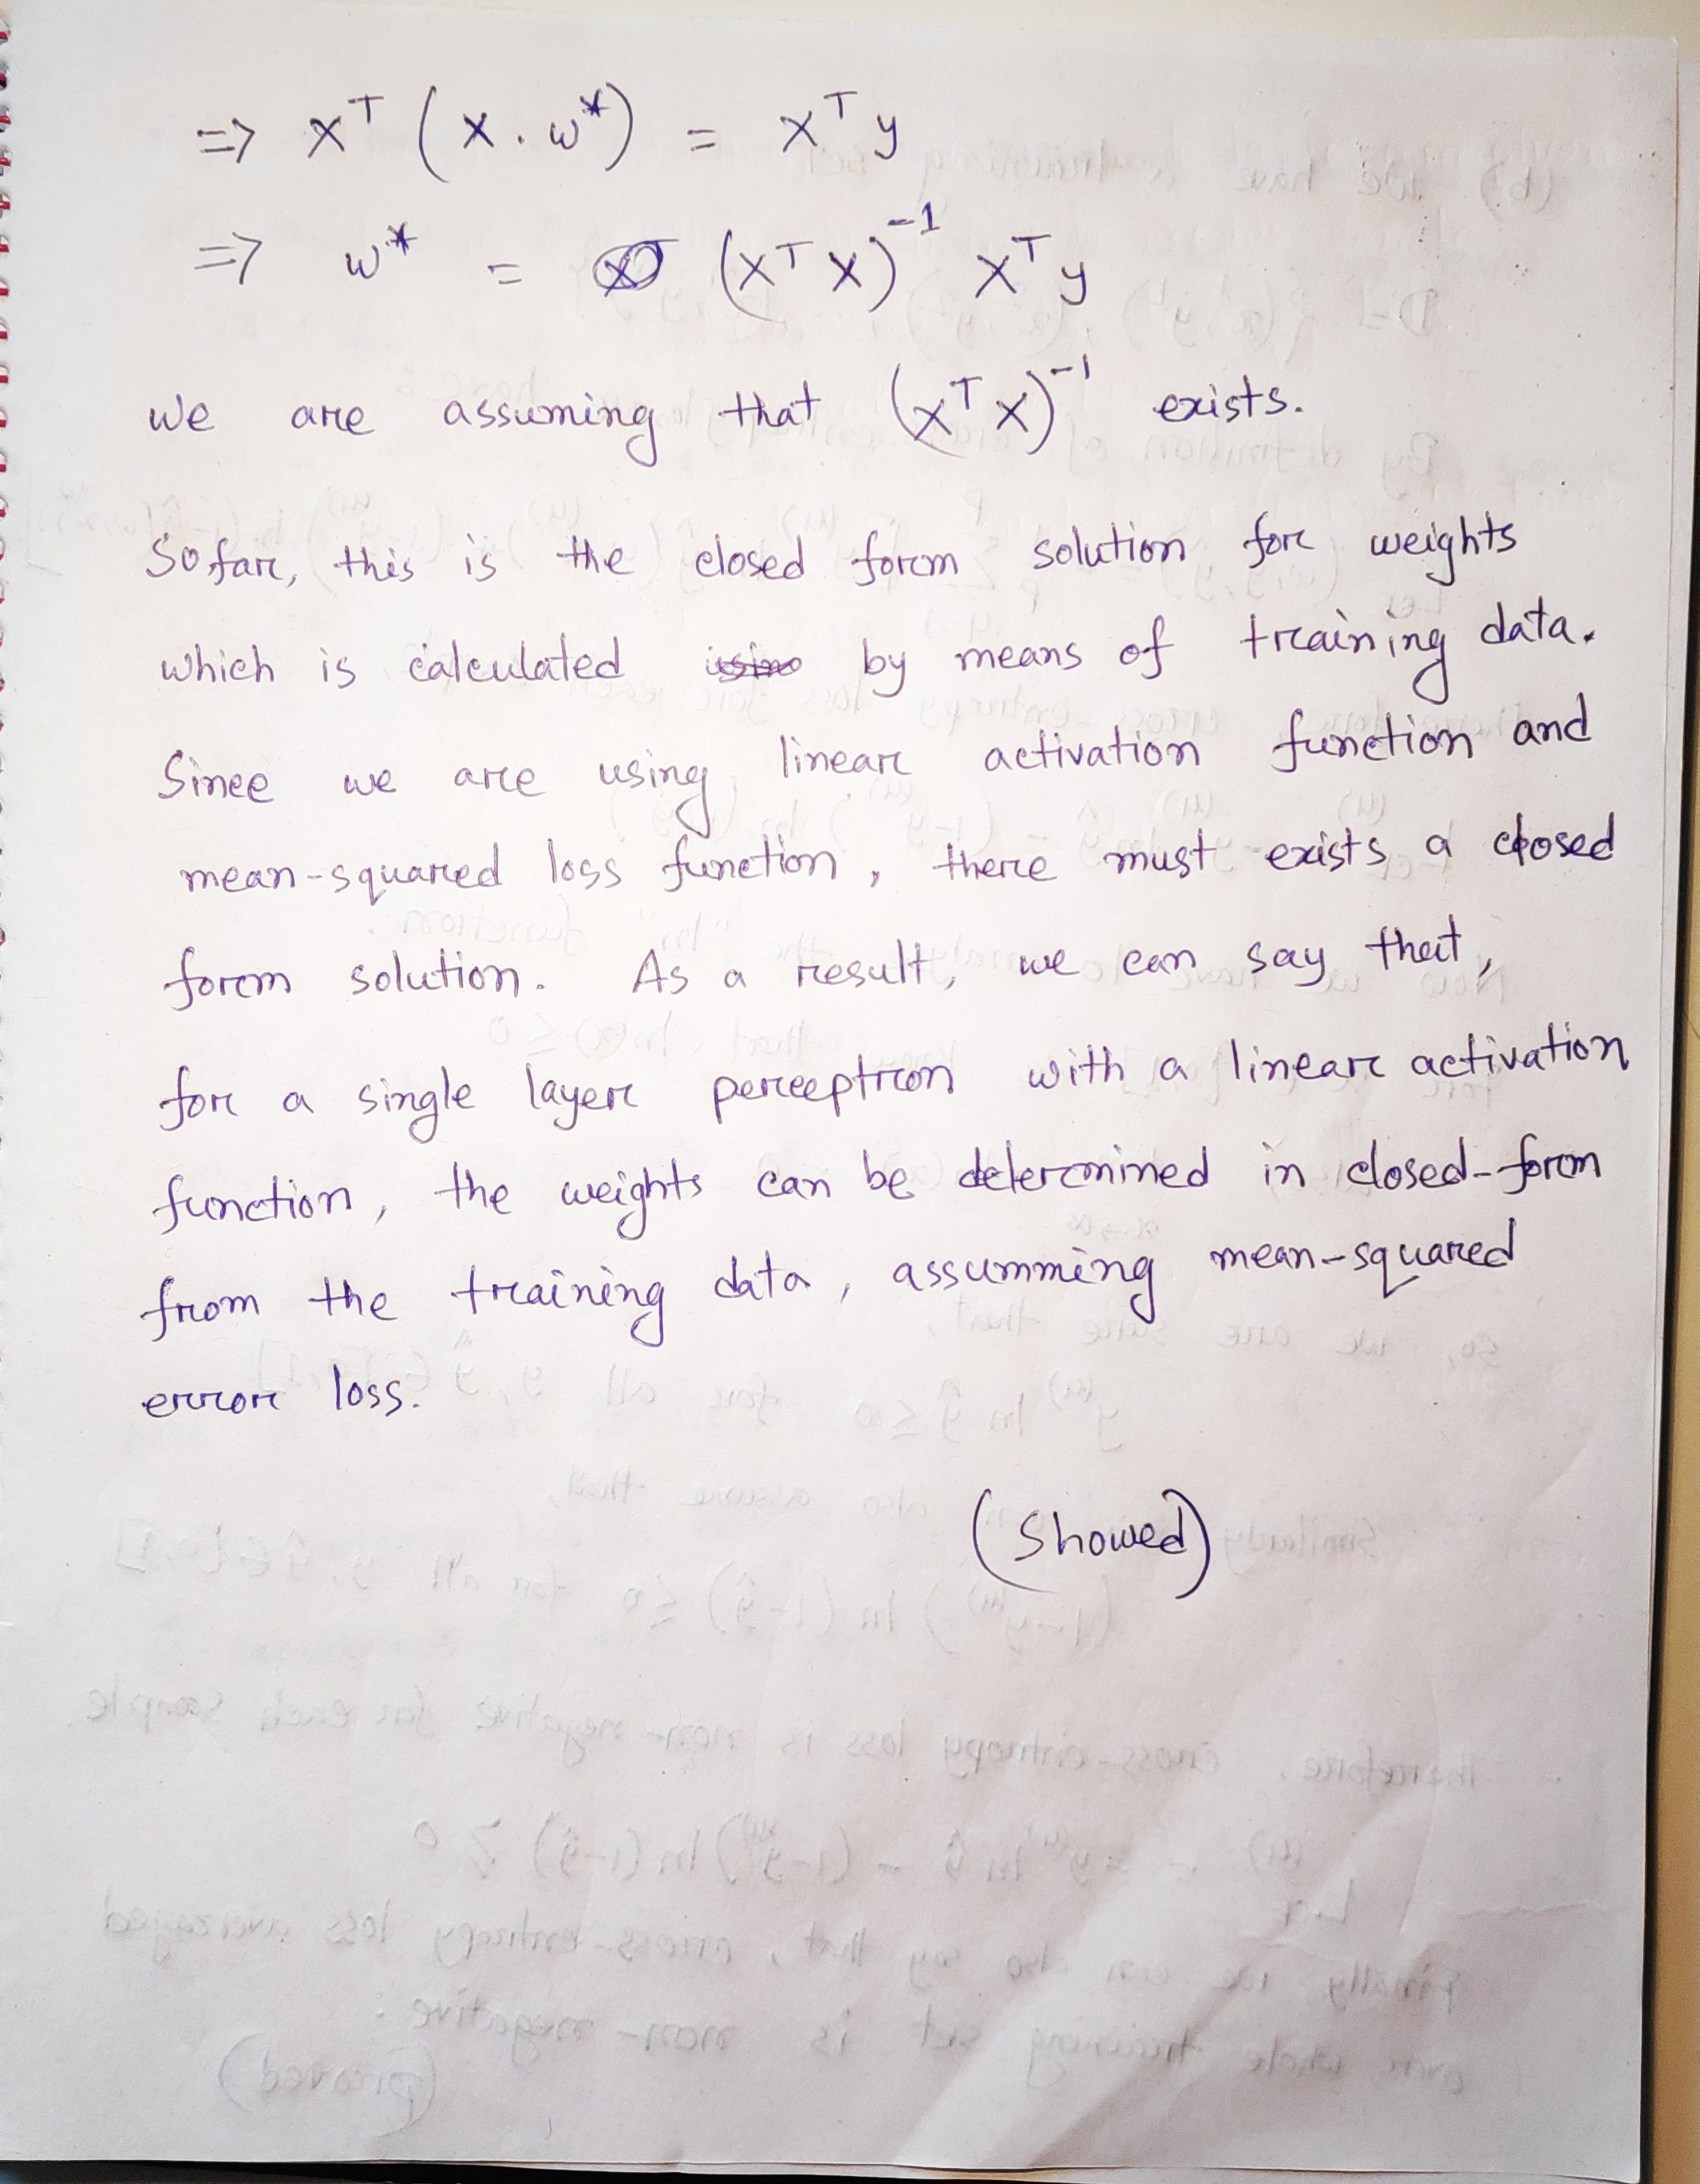 => X^T (X . w*) = X^T y
=> w* = (X^T X)^-1 X^T y
we are assuming that (X^T X)^-1 exists.
So far, this is the closed form solution for weights
which is calculated by means of training data.
Since we are using linear activation function and
mean-squared loss function, there must exists a closed
form solution. As a result, we can say that,
for a single layer perceptron with a linear activation
function, the weights can be determined in closed-form
from the training data, assumming mean-squared
error loss.
(Showed)